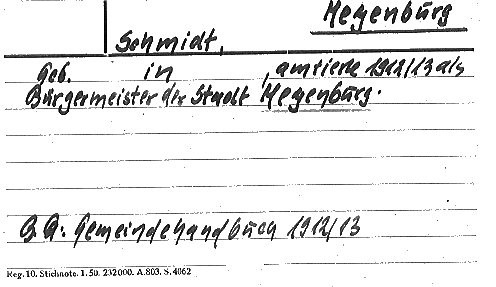 Meyenburg
Schmidt,
Geb. in , amtierte 1912/13 als
Bürgermeister der Stadt Meyenburg.
Q.A: Gemeindehandbuch 1912/13
Reg. 10. Stichnote. 1. 50. 232000. A. 803. S. 4062